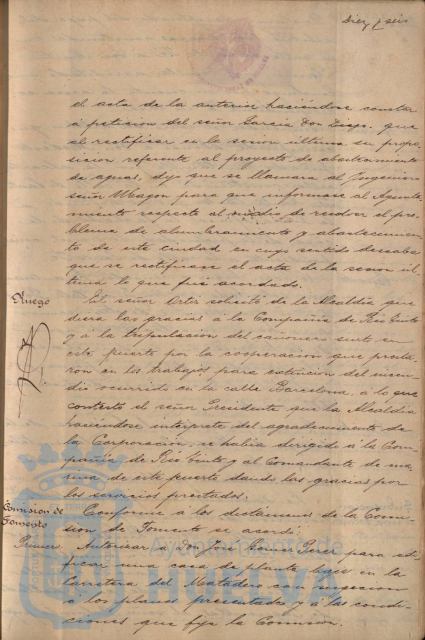 Diez y seis
el acta de la anterior haciéndose constar
á petición del señor García Don Diego, que
al rectificar en la sesión última su propo-
sición referente al proyecto de abastecimiento
de aguas, dijo que se llamara al Ingeniero
señor para que informase al Ayunta-
miento respecto al medio de resolver el pro-
blema de alumbramiento y abastecimien-
to de esta ciudad en cuyo sentido deseaba
que se rectificase el acta de la sesión úl-
tima lo que fué acordado.
Ruego
El señor Ortiz solicitó de la Alcaldía que
diera las gracias á la Compañía de Rio Tinto
y á la tripulación del cañonero surto en
este puerto por la cooperación que presta-
ron en los trabajos para extinción del incen-
dio ocurrido en la calle Barcelona, á lo que
contestó el señor Presidente que la Alcaldía
haciéndose intérprete del agradecimiento de
la Corporación, se había dirigido á la Com-
pañía de Rio Tinto y al Comandante de ma-
rina de este puerto dando las gracias por
los servicios prestados.
Comision de
Fomento
Conforme á los dictámenes de la Comi-
sión de Fomento se acordó:
Primero. Autorizar á Don José Gómez Perez para edi-
ficar una casa de planta baja en la
Carretera del Matadero con sujeción
á los planos presentados y á las condi-
ciones que fija la Comisión.
Ayuntamiento de
HUELVA